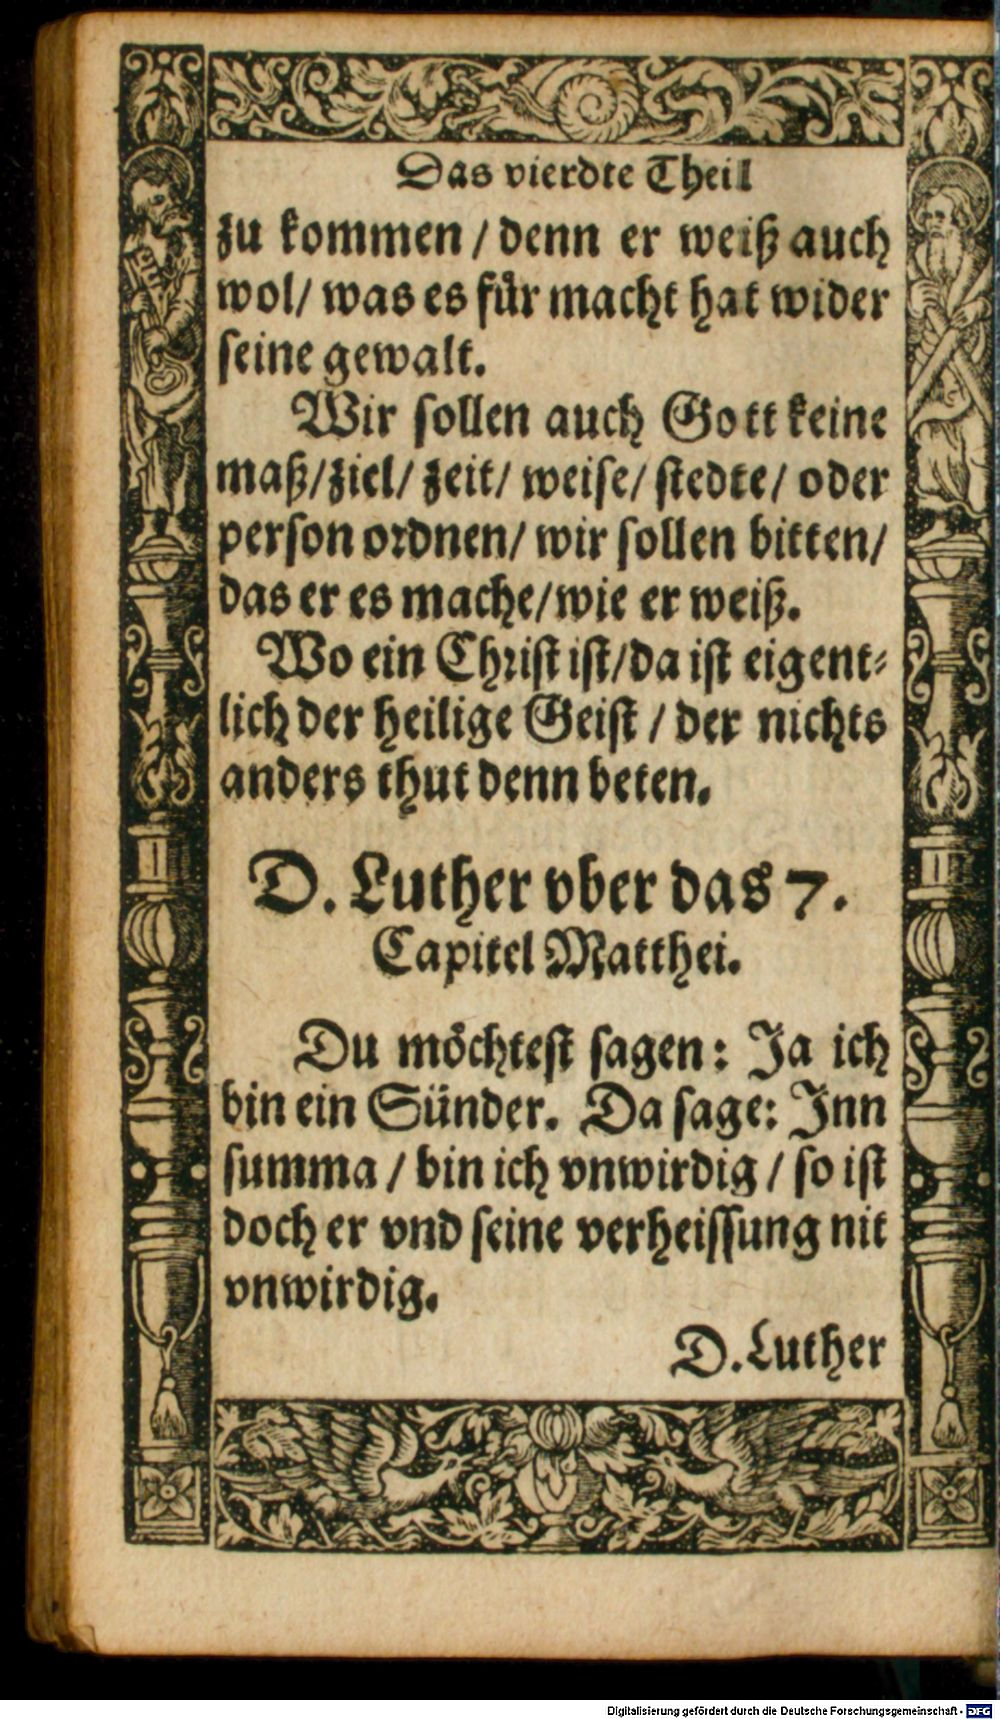 Das vierdte Theil
zu kommen / denn er weiß auch
wol / was es für macht hat wider
seine gewalt.
Wir sollen auch Gott keine
maß / ziel / zeit / weise / stedte / oder
person ordnen / wir sollen bitten /
das er es mache / wie er weiß.
Wo ein Christ ist / da ist eigent⸗
lich der heilige Geist / der nichts
anders thut denn beten.
D. Luther vber das 7.
Capitel Matthei.
Du möchtest sagen: Ja ich
bin ein Sünder. Da sage: Inn
summa / bin ich vnwirdig / so ist
doch er vnd seine verheissung nit
vnwirdig.
D. Luther
Digitalisierung gefördert durch die Deutsche Forschungsgemeinschaft - DFG